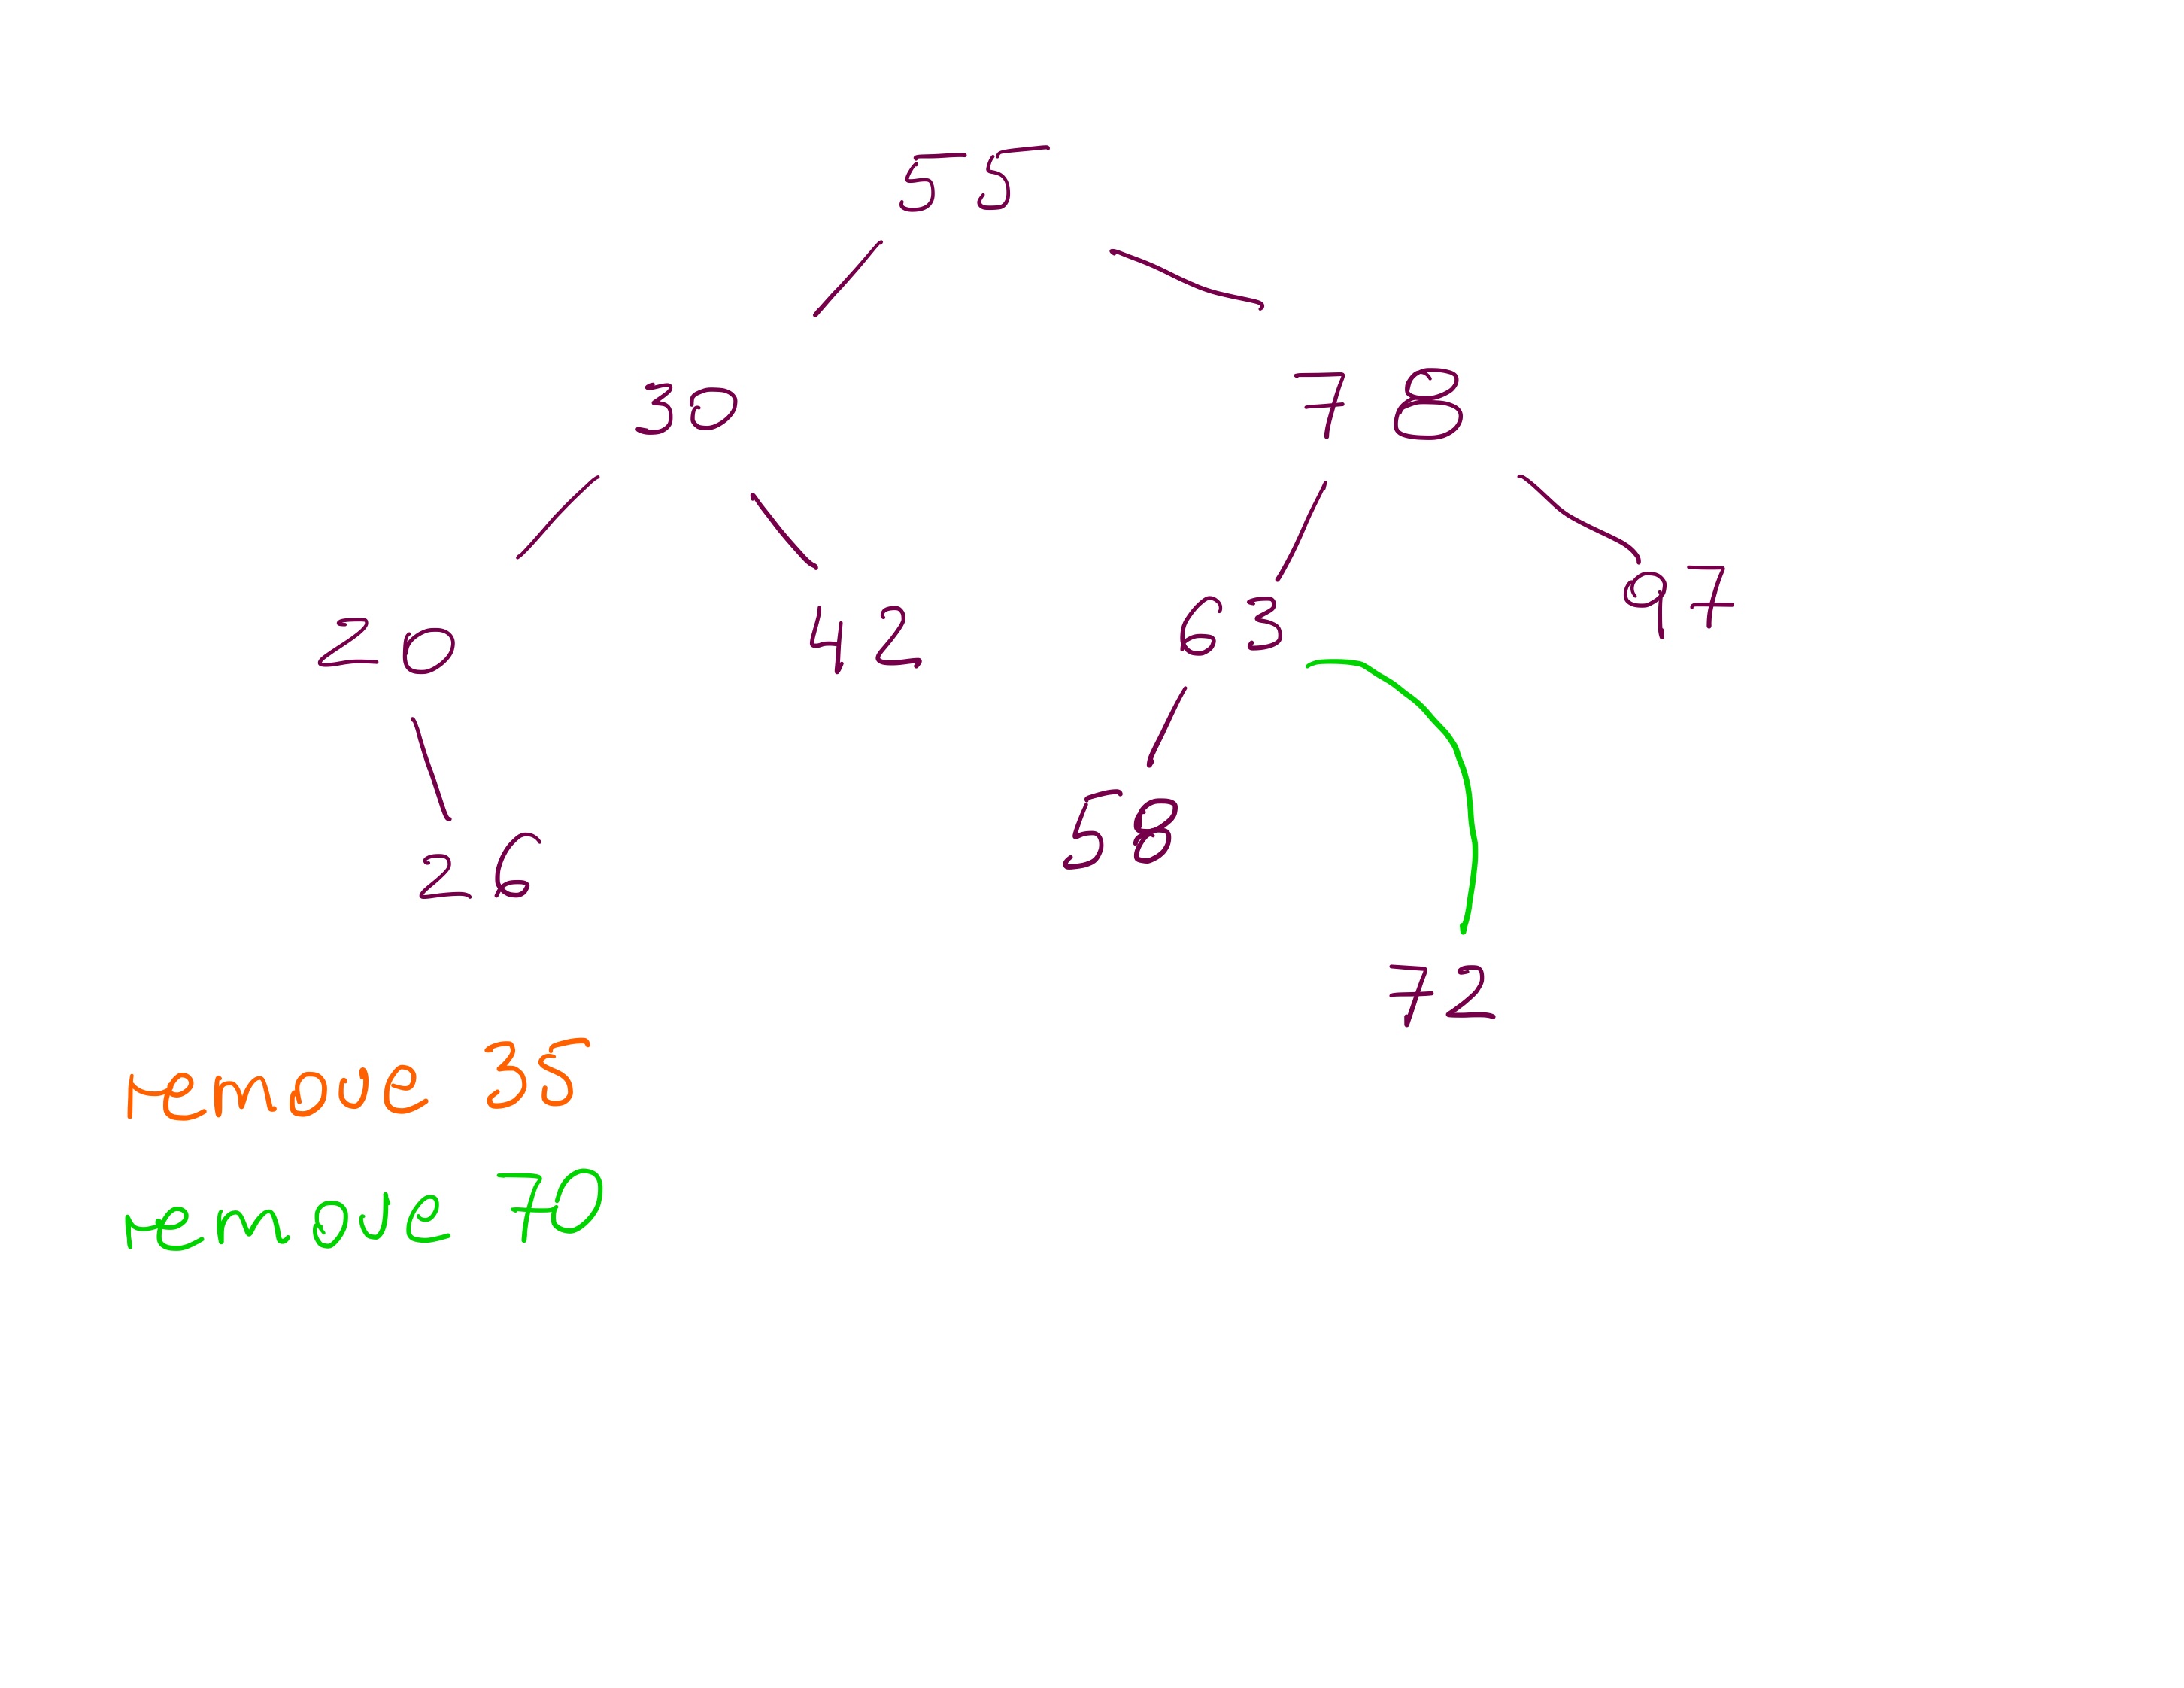 55
30 78
20 42 63 97
26 58
72
remove 35
remove 70